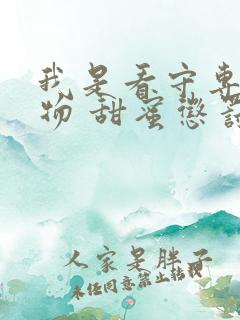 我是看守专
物 甜蜜惩罚
人家是胖子
未经同意禁止转载